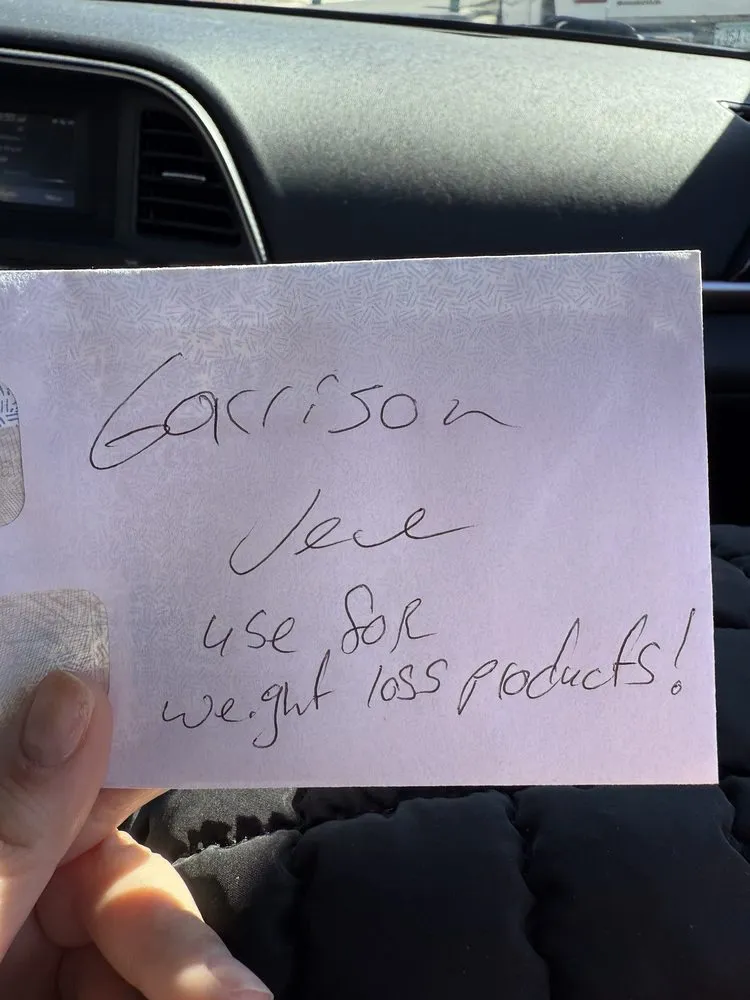 Garrison
use for
weight loss products!